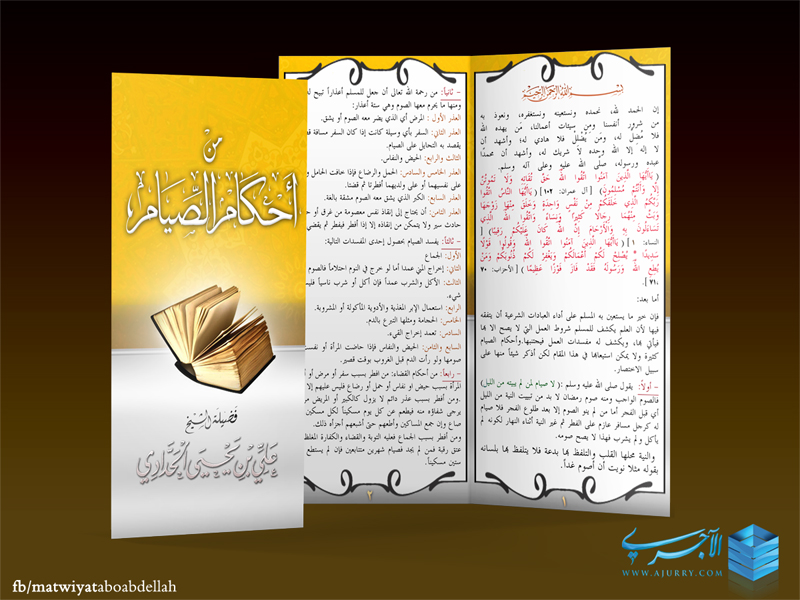 من
أحكام الصيام
فضيلة الشيخ
علي بن يحيى الحدادي
بسم الله الرحمن الرحيم
إن الحمد لله، نحمده ونستعينه ونستغفره، ونعوذ به
من شرور أنفسنا ومن سيئات أعمالنا، من يهده الله
فلا مضل له، ومن يضلل فلا هادي له؛ وأشهد أن
لا إله إلا الله وحده لا شريك له، وأشهد أن محمدًا
عبده ورسوله، صلى الله عليه وعلى آله وسلم.
( يَاأَيُّهَا الَّذِينَ آمَنُوا اتَّقُوا اللَّهَ حَقَّ تُقَاتِهِ وَلَا تَمُوتُنَّ
إِلَّا وَأَنْتُمْ مُسْلِمُونَ) [ آل عمران: ١٠٢] ( يَاأَيُّهَا النَّاسُ اتَّقُوا
رَبَّكُمُ الَّذِي خَلَقَكُمْ مِنْ نَفْسٍ وَاحِدَةٍ وَخَلَقَ مِنْهَا زَوْجَهَا
وَبَثَّ مِنْهُمَا رِجَالًا كَثِيرًا وَنِسَاءً وَاتَّقُوا اللَّهَ الَّذِي
تَسَاءَلُونَ بِهِ وَالْأَرْحَامَ إِنَّ اللَّهَ كَانَ عَلَيْكُمْ رَقِيبًا) [
النساء: ١ ] ( يَاأَيُّهَا الَّذِينَ آمَنُوا اتَّقُوا اللَّهَ وَقُولُوا قَوْلًا
سَدِيدًا * يُصْلِحْ لَكُمْ أَعْمَالَكُمْ وَيَغْفِرْ لَكُمْ ذُنُوبَكُمْ وَمَنْ
يُطِعِ اللَّهَ وَرَسُولَهُ فَقَدْ فَازَ فَوْزًا عَظِيمًا ) [ الأحزاب: ٧٠
،٧١ ].
أما بعد:
فإن خير ما يستعين به المسلم على أداء العبادات الشرعية أن يتفقه
فيها لأن العلم يكشف للمسلم شروط العمل التي لا يصح الا بها
فيأتي بها، ويكشف له مفسدات العمل فيجتنبها.وأحكام الصيام
كثيرة ولا يمكن استيعابها في هذا المقام لكن أذكر شيئاً منها على
سبيل الاختصار.
– أولاً: يقول صلى الله عليه وسلم :( لا صيام لمن لم يبيته من الليل)
فالصوم الواجب ومنه صوم رمضان لا بد من تبييت النية من الليل
أي قبل الفجر أما من لم ينو الصوم إلا بعد طلوع الفجر فلا صيام
له كرجل مسافر عازم على الفطر ثم غير النية أثناء النهار لكونه لم
يأكل ولم يشرب فهذا لا يصح صومه.
والنية محلها القلب والتلفظ بها بدعة فلا يتلفظ بها بلسانه
بقوله مثلا نويت أن أصوم غداً.
١
– ثانياً: من رحمة الله تعالى أن جعل للمسلم أعذاراً تبيح له
ومنها ما يحرم معها الصوم وهي ستة أعذار:
العذر الأول : المرض أي الذي يضر معه الصوم أو يشق.
العذر الثاني: السفر بأي وسيلة كانت إذا كان السفر مسافة
يقصد به التحايل على الصيام.
الثالث والرابع: الحيض والنفاس.
العذر الخامس والسادس: الحمل والرضاع فإذا خافت الحامل
على نفسيهما أو على ولديهما أفطرتا ثم قضتا.
العذر السابع: الكبر الذي يشق معه الصوم مشقة بالغة.
العذر الثامن: أن يحتاج إلى إنقاذ نفس معصومة من غرق أو
حادث سير ولا يتمكن من إنقاذه إلا إذا أفطر فيفطر ثم يقضي
– ثالثاً: يفسد الصيام بحصول إحدى المفسدات التالية:
الأول: الجماع
الثاني: إخراج المني عمدا أما لو خرج في النوم احتلاماً فالصوم
الثالث: الأكل والشرب عمداً فإن أكل أو شرب ناسياً
شيء.
الرابع: استعمال الإبر المغذية والأدوية المأكولة أو المشروبة.
الخامس: الحجامة ومثلها التبرع بالدم.
السادس: تعمد إخراج القيء.
السابع والثامن: الحيض والنفاس فإذا حاضت المرأة أو نفست
صومها ولو رأت الدم قبل الغروب بوقت قصير.
– رابعاً: من أحكام القضاء: من أفطر بسبب سفر أو مرض أو
المرأة بسبب حيض او نفاس أو حمل أو رضاع فليس عليهم إلا
.ومن أفطر بسبب عذر دائم لا يزول كالكبير أو المريض
يرجى شفاؤه منه فيطعم عن كل يوم مسكيناً لكل مسكين
صاع وإن جمع المساكين وأطعمهم حتى أشبعهم أجزأه ذلك.
ومن أفطر بسبب الجماع فعليه التوبة والقضاء والكفارة
عتق رقبة فمن لم يجد فصيام شهرين متتابعين فإن لم يستطع
ستين مسكيناً.
٢
الآجري
WWW.AJURRY.COM
fb/matwiyataboabdellah